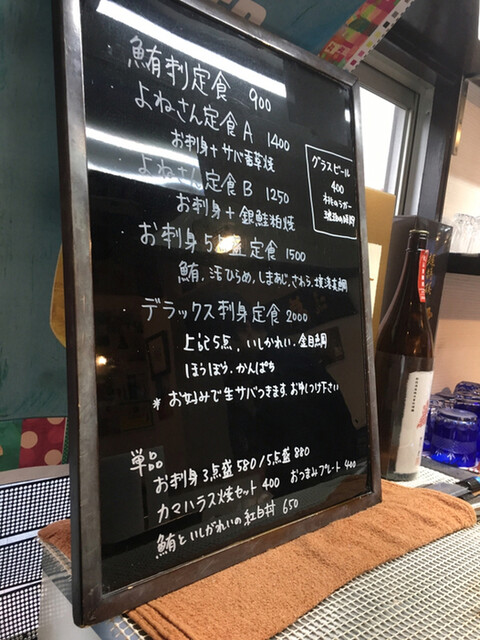 鮪刺定食 900
よねさん定食A 1400
お刺身+サバ香草焼
よねさん定食B 1250
お刺身+銀鮭粕焼
お刺身5点盛定食 1500
鮪、活ひらめ、しまあじ、さわら、真鯛
デラックス刺身定食 2000
上記5点、いしかれい、金目鯛
ほうぼう、かんぱち
*お好みで生サバつきます。お申しつけ下さい
グラスビール
400
単品
お刺身3点盛580/5点盛880
カマハラス焼セット400 おつまみプレート400
鮪といしがれいの紅白丼 650